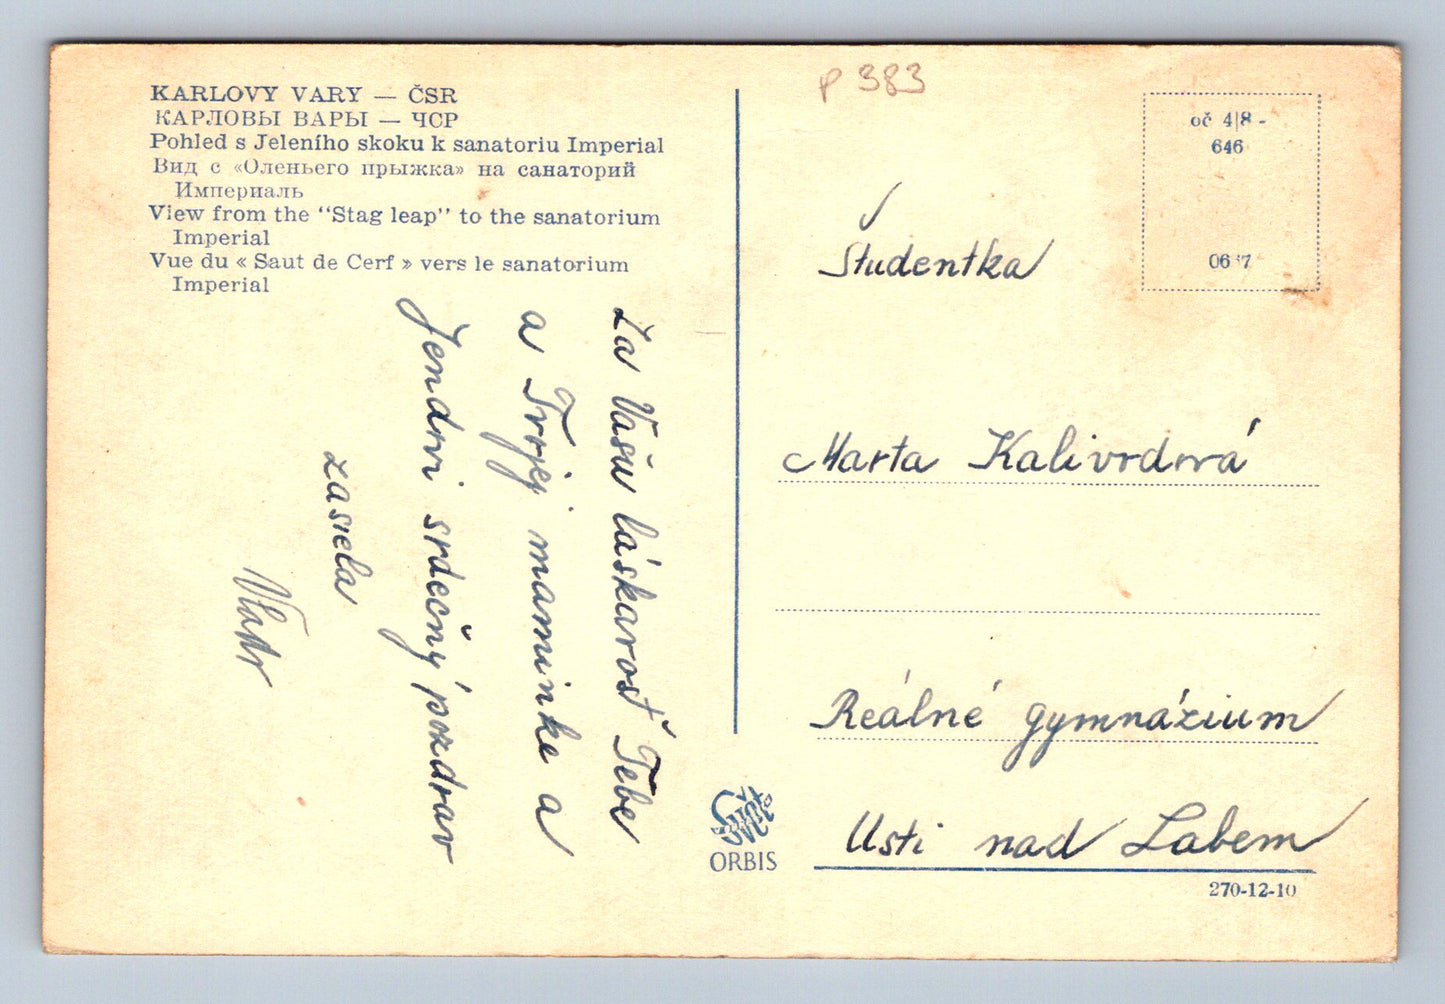 KARLOVY VARY — ČSR
КАРЛОВЫ ВАРЫ — ЧСР
Pohled s Jeleního skoku k sanatoriu Imperial
Вид с «Оленьего прыжка» на санаторий
Империаль
View from the "Stag leap" to the sanatorium
Imperial
Vue du « Saut de Cerf » vers le sanatorium
Imperial
Za Vašu láskavosť Tebe
a Tvojej maminke a
Jendovi srdečný pozdrav
zasiela
p 383
oč 4|8 -
646
Študentka
Marta Kalivodová
Reálné gymnázium
Usti nad Labem
ORBIS
270-12-10